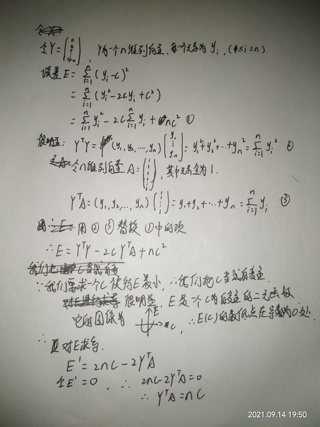 令Y=(y₁ y₂ ⋮ yₙ), Y为一个n维列向量, 每个元素为yᵢ, (1≤i≤n)
误差E=Σᵢ₌₁ⁿ(yᵢ-c)²
=Σᵢ₌₁ⁿ(yᵢ²-2cyᵢ+c²)
=Σᵢ₌₁ⁿyᵢ²-2cΣᵢ₌₁ⁿyᵢ+nc² ①
很明显: YᵀY=(y₁, y₂, …, yₙ)(y₁ y₂ ⋮ yₙ)=y₁²+y₂²+…+yₙ²=Σᵢ₌₁ⁿyᵢ² ②
个n维列向量A=(1 1 ⋮ 1), 其中元素全为1.
YᵀA=(y₁, y₂, …, yₙ)(1 1 ⋮ 1)=y₁+y₂+…+yₙ=Σᵢ₌₁ⁿyᵢ ③
用②③替换①中的项
∴E=YᵀY-2cYᵀA+nc²
∵我们要求一个C使的E最小, ∴我们把C当成自变量
很明显, E是个C为自变量的二元函数
它的图像为 E C ∴E(c)的最低点在导数为0处
∴直对E求导.
E'=2nC-2YᵀA
令E'=0, ∴2nC-2YᵀA=0
∴YᵀA=nC
2021.09.14 19:50